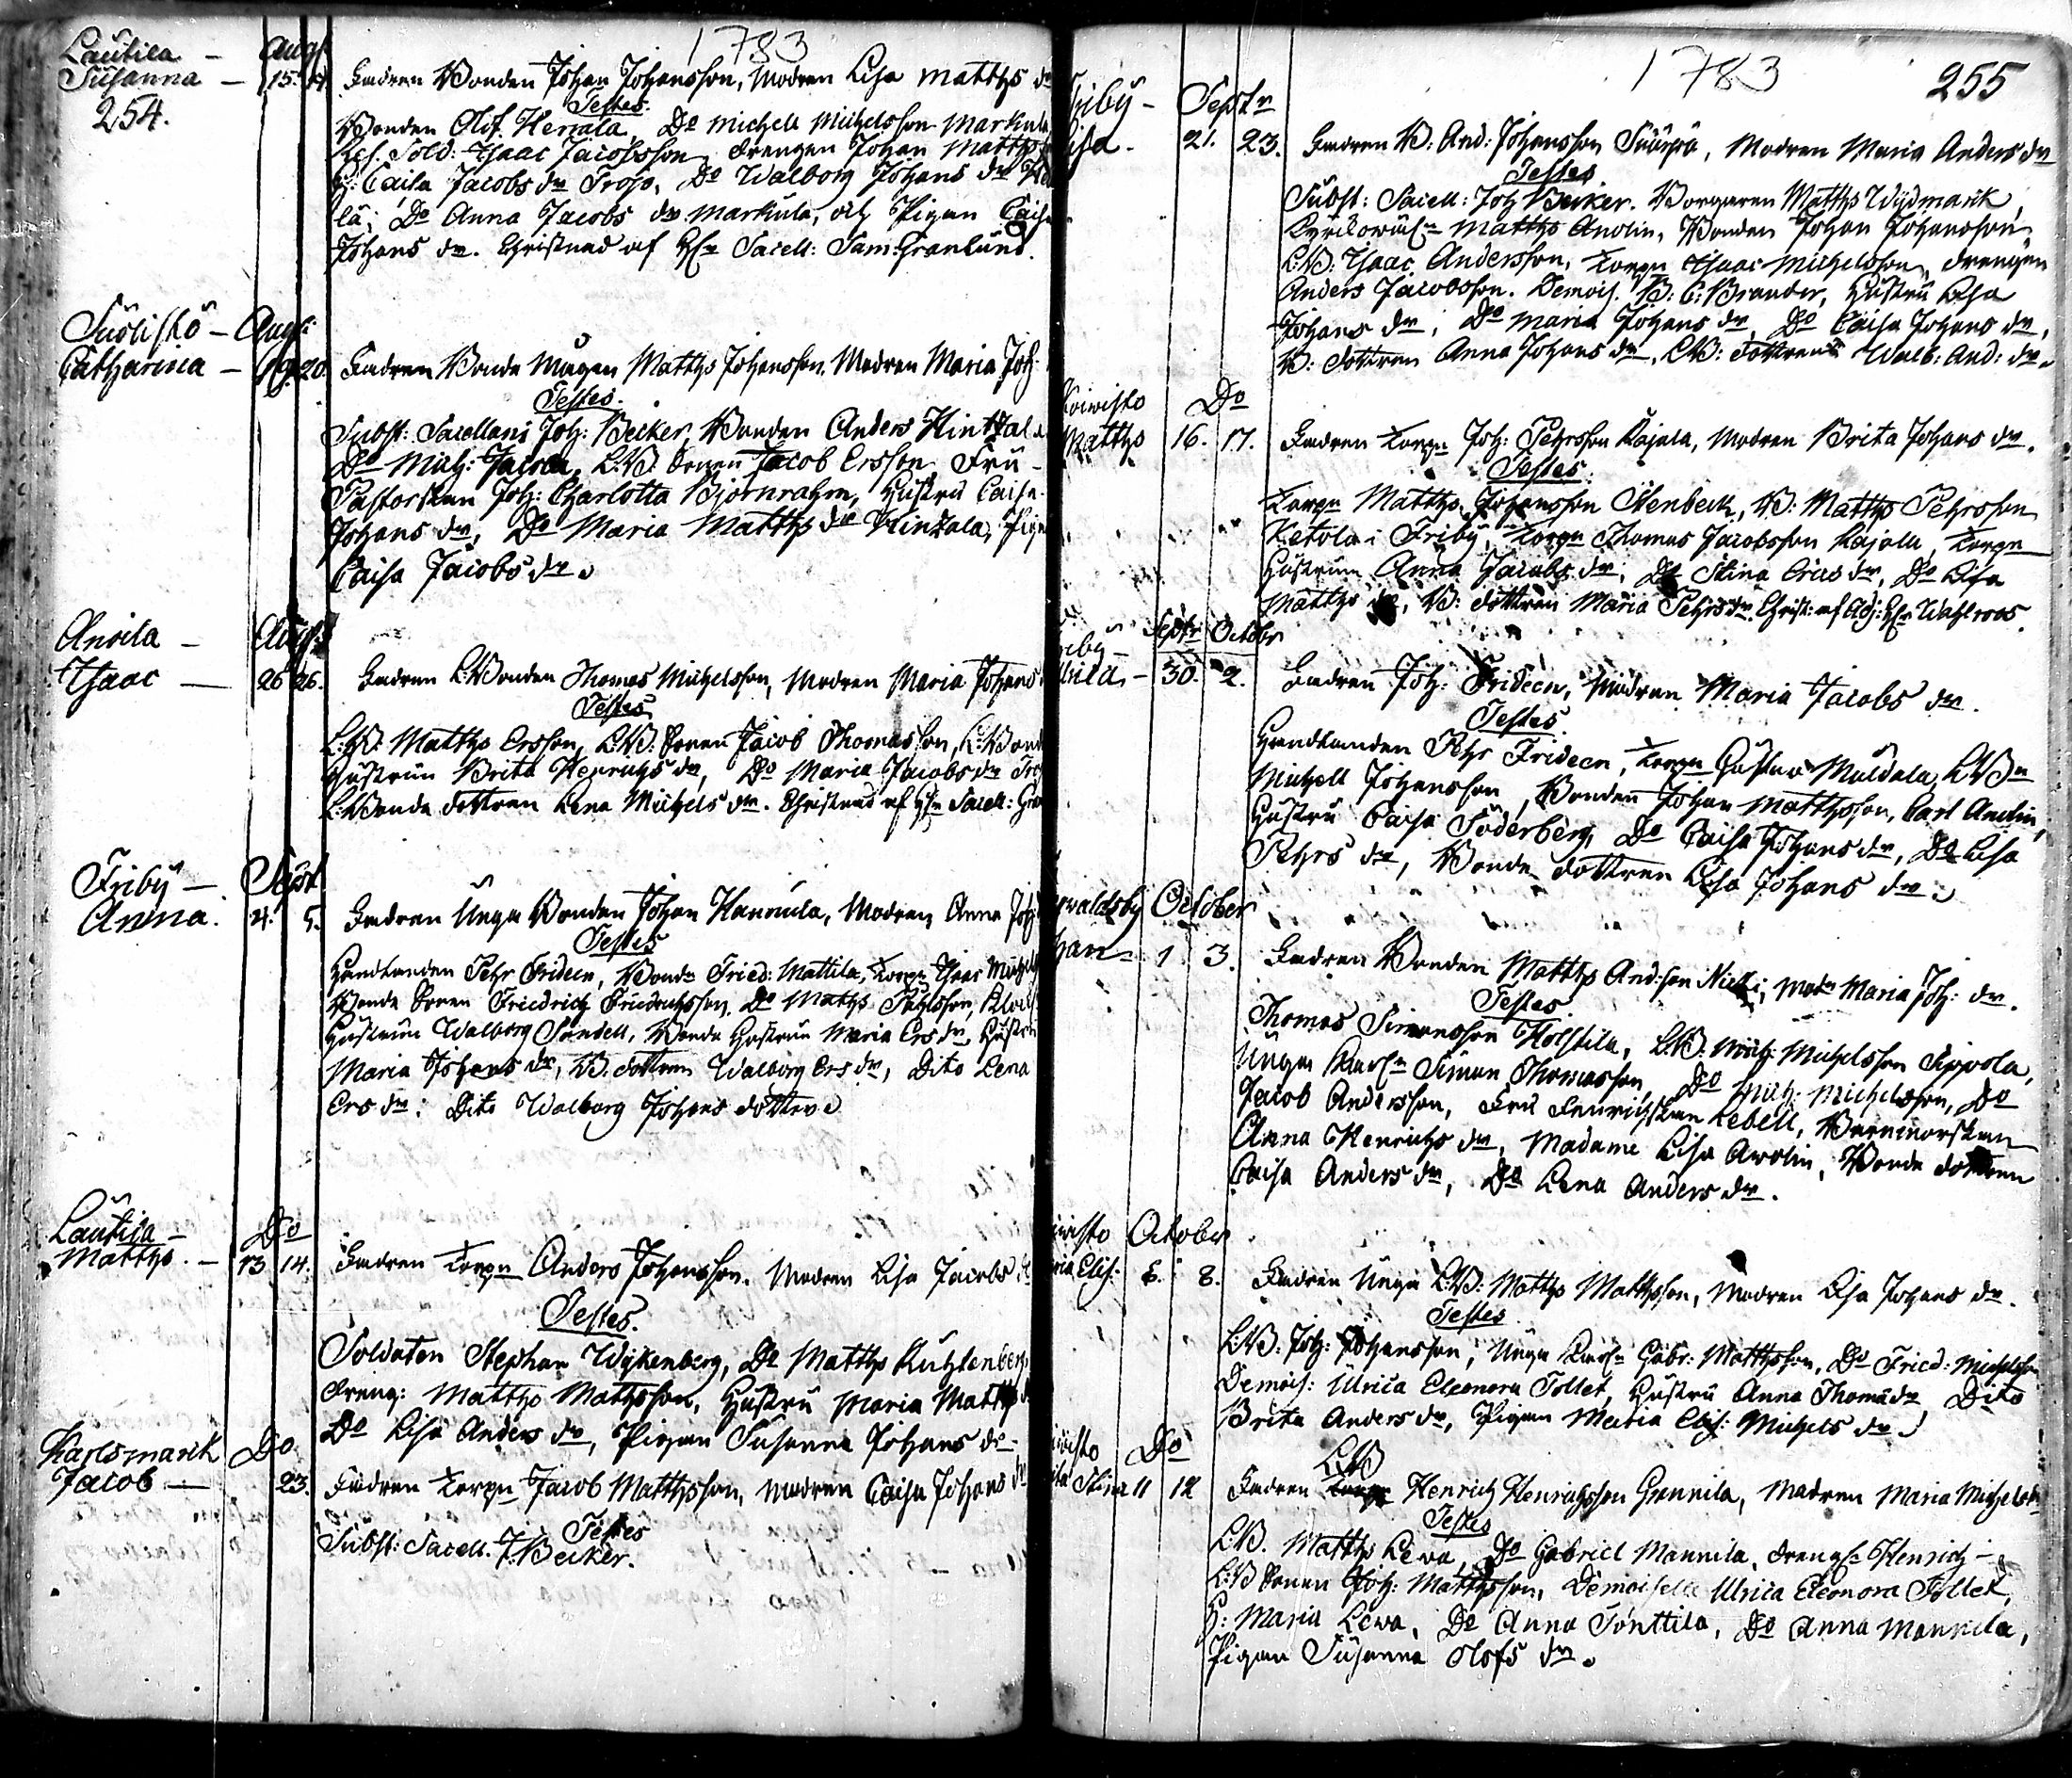 1783
Lautila - Aug:
Susanna - 15. 17. Fadren Bonden Johan Johansson, Modren Lisa Matthsdr
254. Testes.
Bonden Olof Herrala, Do Michell Michelsson Markula
Sold: Isaac Jacobsson, Drengen Johan Matths
H: Caisa Jacobs dr Trop, Do Walborg Johans dr
la; Do Anna Jacobs dr Markula, och Pigan Caisa
Johans dr. Christnad af Hr Sacell: Sam: Granlund.
Suolisto - Aug:
Catharina - 19. 20. Fadren Bonde Magen Matths Johansson, Modren Maria Joh:
Testes.
Subst: Sacellani Joh: Becker, Bonden Anders Hintzala
Do Mich: Jacola, L:B. Sonen Jacob Ersson, Fru
Pastorskan Joh: Charlotta Björnrahm, Hustru Caisa
Johans dr, Do Maria Matths dr Hinzala, Pigan
Caisa Jacobs dr.
Ansila - Aug:
Isaac - 26 26. Fadren L:Bonden Thomas Michelsson, Modren Maria Johans
Testes
L:B: Matths Ersson, L:B: Sonen Jacob Thomasson, L:Bond
Hustrun Brita Henrichs dr, Do Maria Jacobs dr
L:Bonde dottren Lena Michels dr. Christnad af Hr Sacell: Gran
Friby - Sept
Anna. 4. 5. Fadren Unga Bonden Johan Hannula, Modren Anna Joh
Testes
Handlanden Pehr Frideen, Bondn Fried: Mattila, Torpn Isaac Michels
Bonde Sonen Friedrich Friedrichsson, Do Maths Pehrsson,
Hustrun Walborg Sundell, Bonde Hustrun Maria Ers dr, Hustru
Maria Johans dr, B. dottren Walborg Ers dr, Dito Lena
Ers dr; Dito Walborg Johans dotter.
Lautila - Do
Matths. - 13 14. Fadren Torpn Anders Johansson. Modren Lisa Jacobs dr
Testes.
Soldaten Stephan Wykenberg, Do Matths Kuhlenberg
Dreng: Matths Mathsson, Hustru Maria Matths
Do Lisa Anders dr, Pigan Susanna Johans dr
Karlsmark Do
Jacob - 23. Fadren Torpn Jacob Matthsson, Modren Caisa Johans dr
Testes
Subst: Sacell. J. Becker.
1783 255
Friby - Septr
Lisa. 21. 23. Fadren B: And: Johansson Suurpä, Modren Maria Anders dr
Testes
Subst: Sacell: Joh Becker. Borgaren Matths Wydmark,
Matths Anolin, Bonden Johan Johansson,
L:B: Isaac Andersson, Torpn Isaac Michelsson, Drengen
Anders Jacobsson. Demois. B: C: Brander, Hustru Lisa
Johans dr; Do Maria Johans dr, Do Caisa Johans dr,
B: dottren Anna Johans dr, L:B: dottren Walb: And: dr.
Koiwisto Do
Matths 16. 17. Fadren Torpn Joh: Pehrsson Rajala, Modren Brita Johans dr.
Testes.
Torpn Matths Johansson Stenbeck, B: Matths Pehrsson
Ketola i Friby, Torpn Thomas Jacobsson Rajala, Torpn
Hustrun Anna Jacobs dr; Do Stina Erics dr, Do Lisa
Matths dr, B: dottren Maria Pehrs dr. Christ: af Adj: Hr Wahlroos.
Friby - Septr Octobr
30. 2. Fadren Joh: Frideen, Modren Maria Jacobs dr.
Testes.
Handlanden Pehr Frideen, Torpn Gustav Muldala, L:Bn
Michell Johansson, Bonden Johan Matthsson, Carl Anolin,
Hustru Caisa Söderberg, Do Caisa Johans dr, Do Lisa
Pehrs dr, Bonde dottren Lisa Johans dr.
waldsby October
han - 1 3. Fadren Bonden Matths And:son Nicki, Modn Maria Joh: dr.
Testes
Thomas Simonsson Holstila, L:B: Mich: Michelsson Sippola,
Unga Karln Simon Thomasson, Do Mich: Michelsson, Do
Jacob Andersson, Fru Fenrichskan Lebell, Barnmorskan
Anna Henrichs dr, Madame Lisa Awolin, Bonde dottren
Caisa Anders dr, Do Lena Anders dr.
wisto October
ria Elis: 6. 8. Fadren Unga L:B: Matths Matthsson, Modren Lisa Johans dr.
Testes
L:B: Joh: Johansson, Unga Karln Gabr: Matthsson, Do Fried: Michelsson
Demois: Ulrica Eleonora Tollet, Hustru Anna Thomæ dr Dito
Brita Anders dr, Pigan Maria Elis: Michels dr.
wisto Do LB
Stina 11 12 Fadren Torpn Henrich Henrichsson Grannila, Madren Maria Michelsdr
Testes
L:B. Matths Lewa, Do Gabriel Mannila, Drengn Henrich -
L:B Sonen Joh: Matthsson, Demoiselle Ulrica Eleonora Tollet,
H: Maria Lewa, Do Anna Tönttila, Do Anna Mannila,
Pigan Susanna Olofs dr.